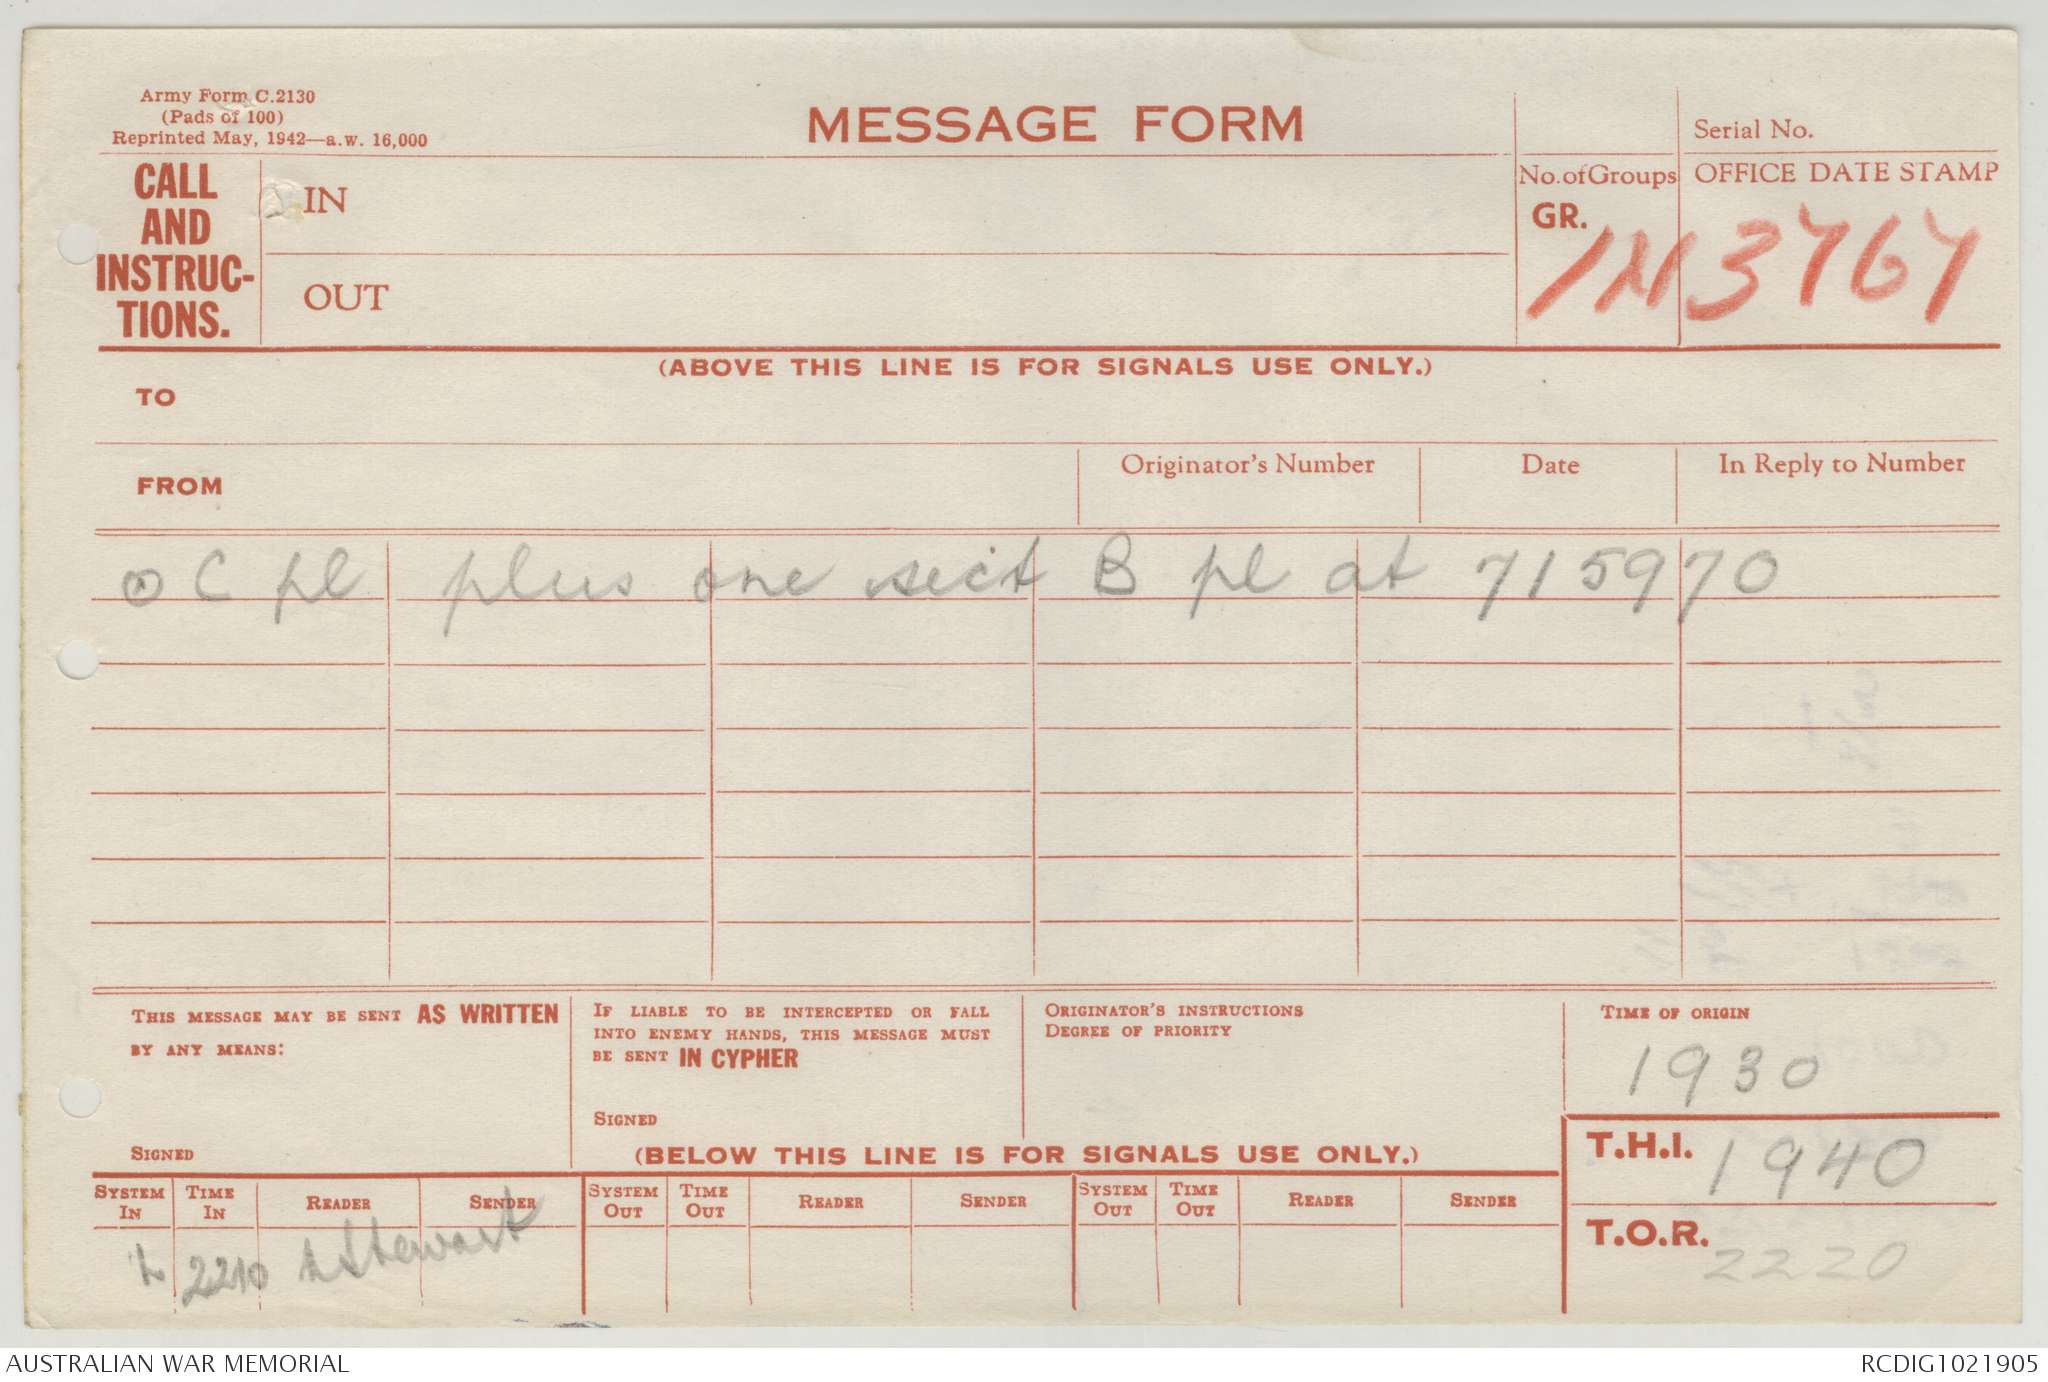 Army Form C.2130
(Pads of 100)
Reprinted May, 1942—a.w. 16,000
MESSAGE FORM
Serial No.
CALL AND INSTRUC-TIONS.
IN
OUT
No. of Groups
GR.
OFFICE DATE STAMP
IN 3767
(ABOVE THIS LINE IS FOR SIGNALS USE ONLY.)
TO
FROM
Originator's Number
Date
In Reply to Number
C pl plus one sect B pl at 715970
THIS MESSAGE MAY BE SENT AS WRITTEN
BY ANY MEANS:
SIGNED
IF LIABLE TO BE INTERCEPTED OR FALL
INTO ENEMY HANDS, THIS MESSAGE MUST
BE SENT IN CYPHER
SIGNED
ORIGINATOR'S INSTRUCTIONS
DEGREE OF PRIORITY
TIME OF ORIGIN
1930
(BELOW THIS LINE IS FOR SIGNALS USE ONLY.)
T.H.I. 1940
T.O.R. 2220
SYSTEM IN
TIME IN
READER
SENDER
SYSTEM OUT
TIME OUT
READER
SENDER
SYSTEM OUT
TIME OUT
READER
SENDER
2210 Stewart
AUSTRALIAN WAR MEMORIAL
RCDIG1021905